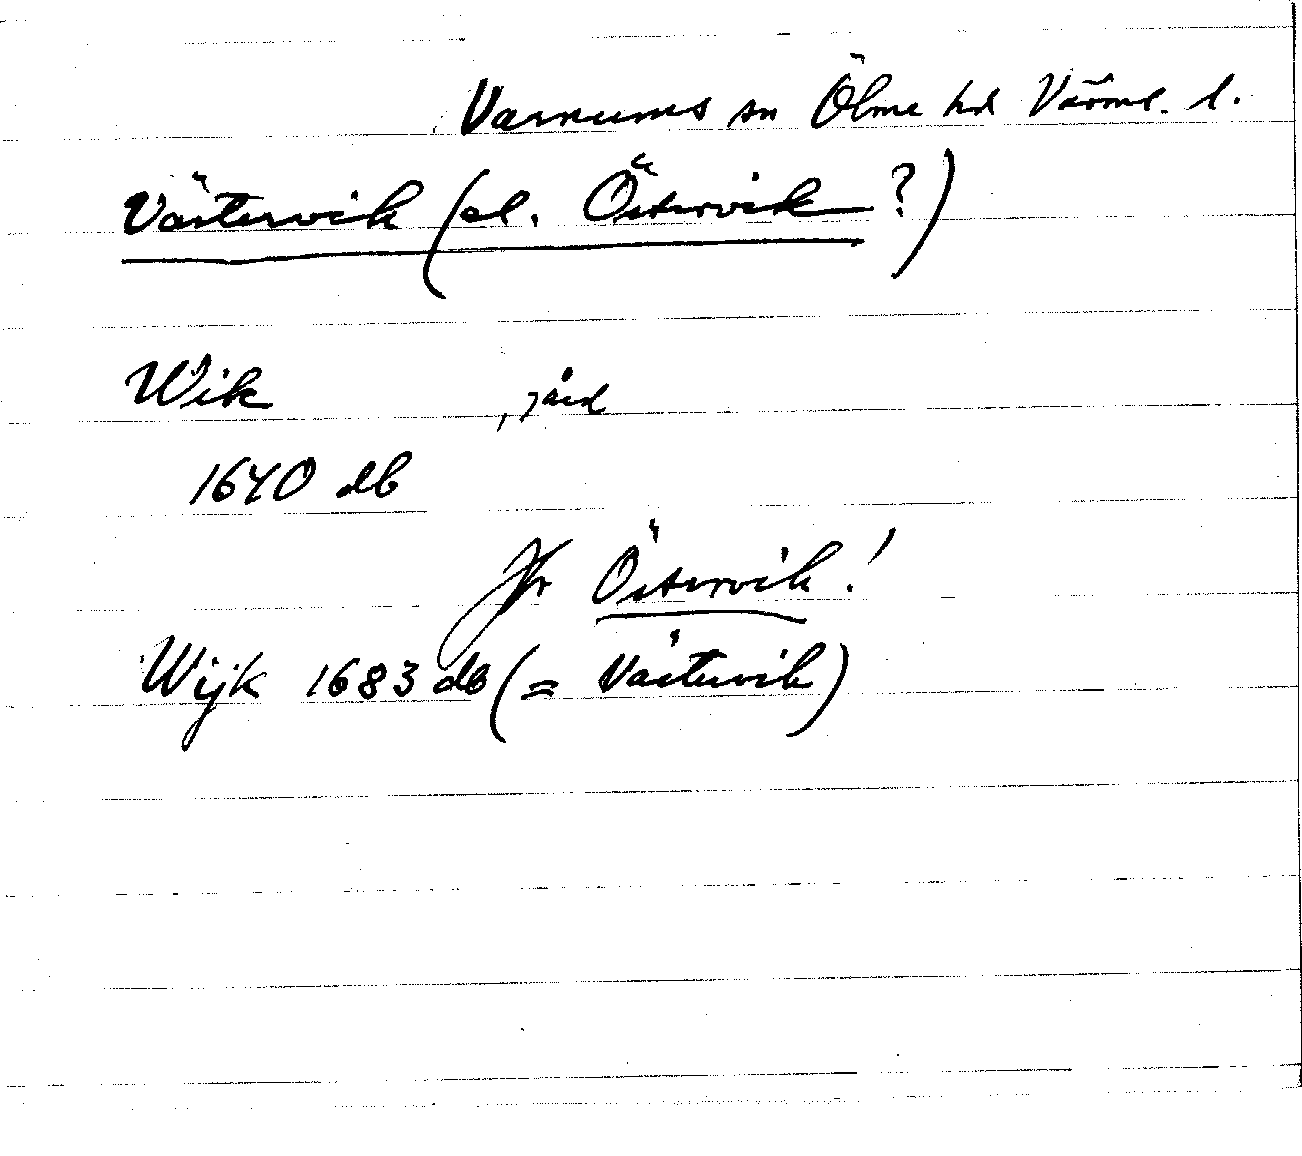 Varnums sn Ölme hd Värml. l.
Västervik (el. Östervik ?)
Wik , jård
1640 db
Jfr Östervik!
Wijk 1683 db (= Västervik)